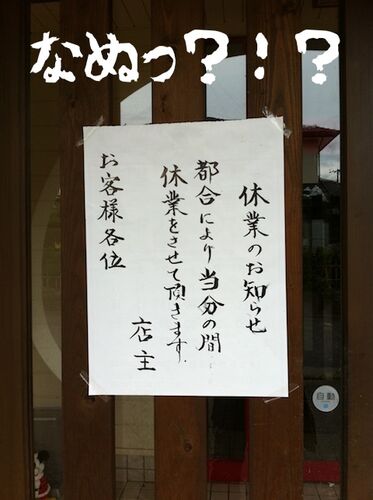 なぬっ？！？
休業のお知らせ
都合により当分の間
休業をさせて頂きます.
店主
お客様各位
自動